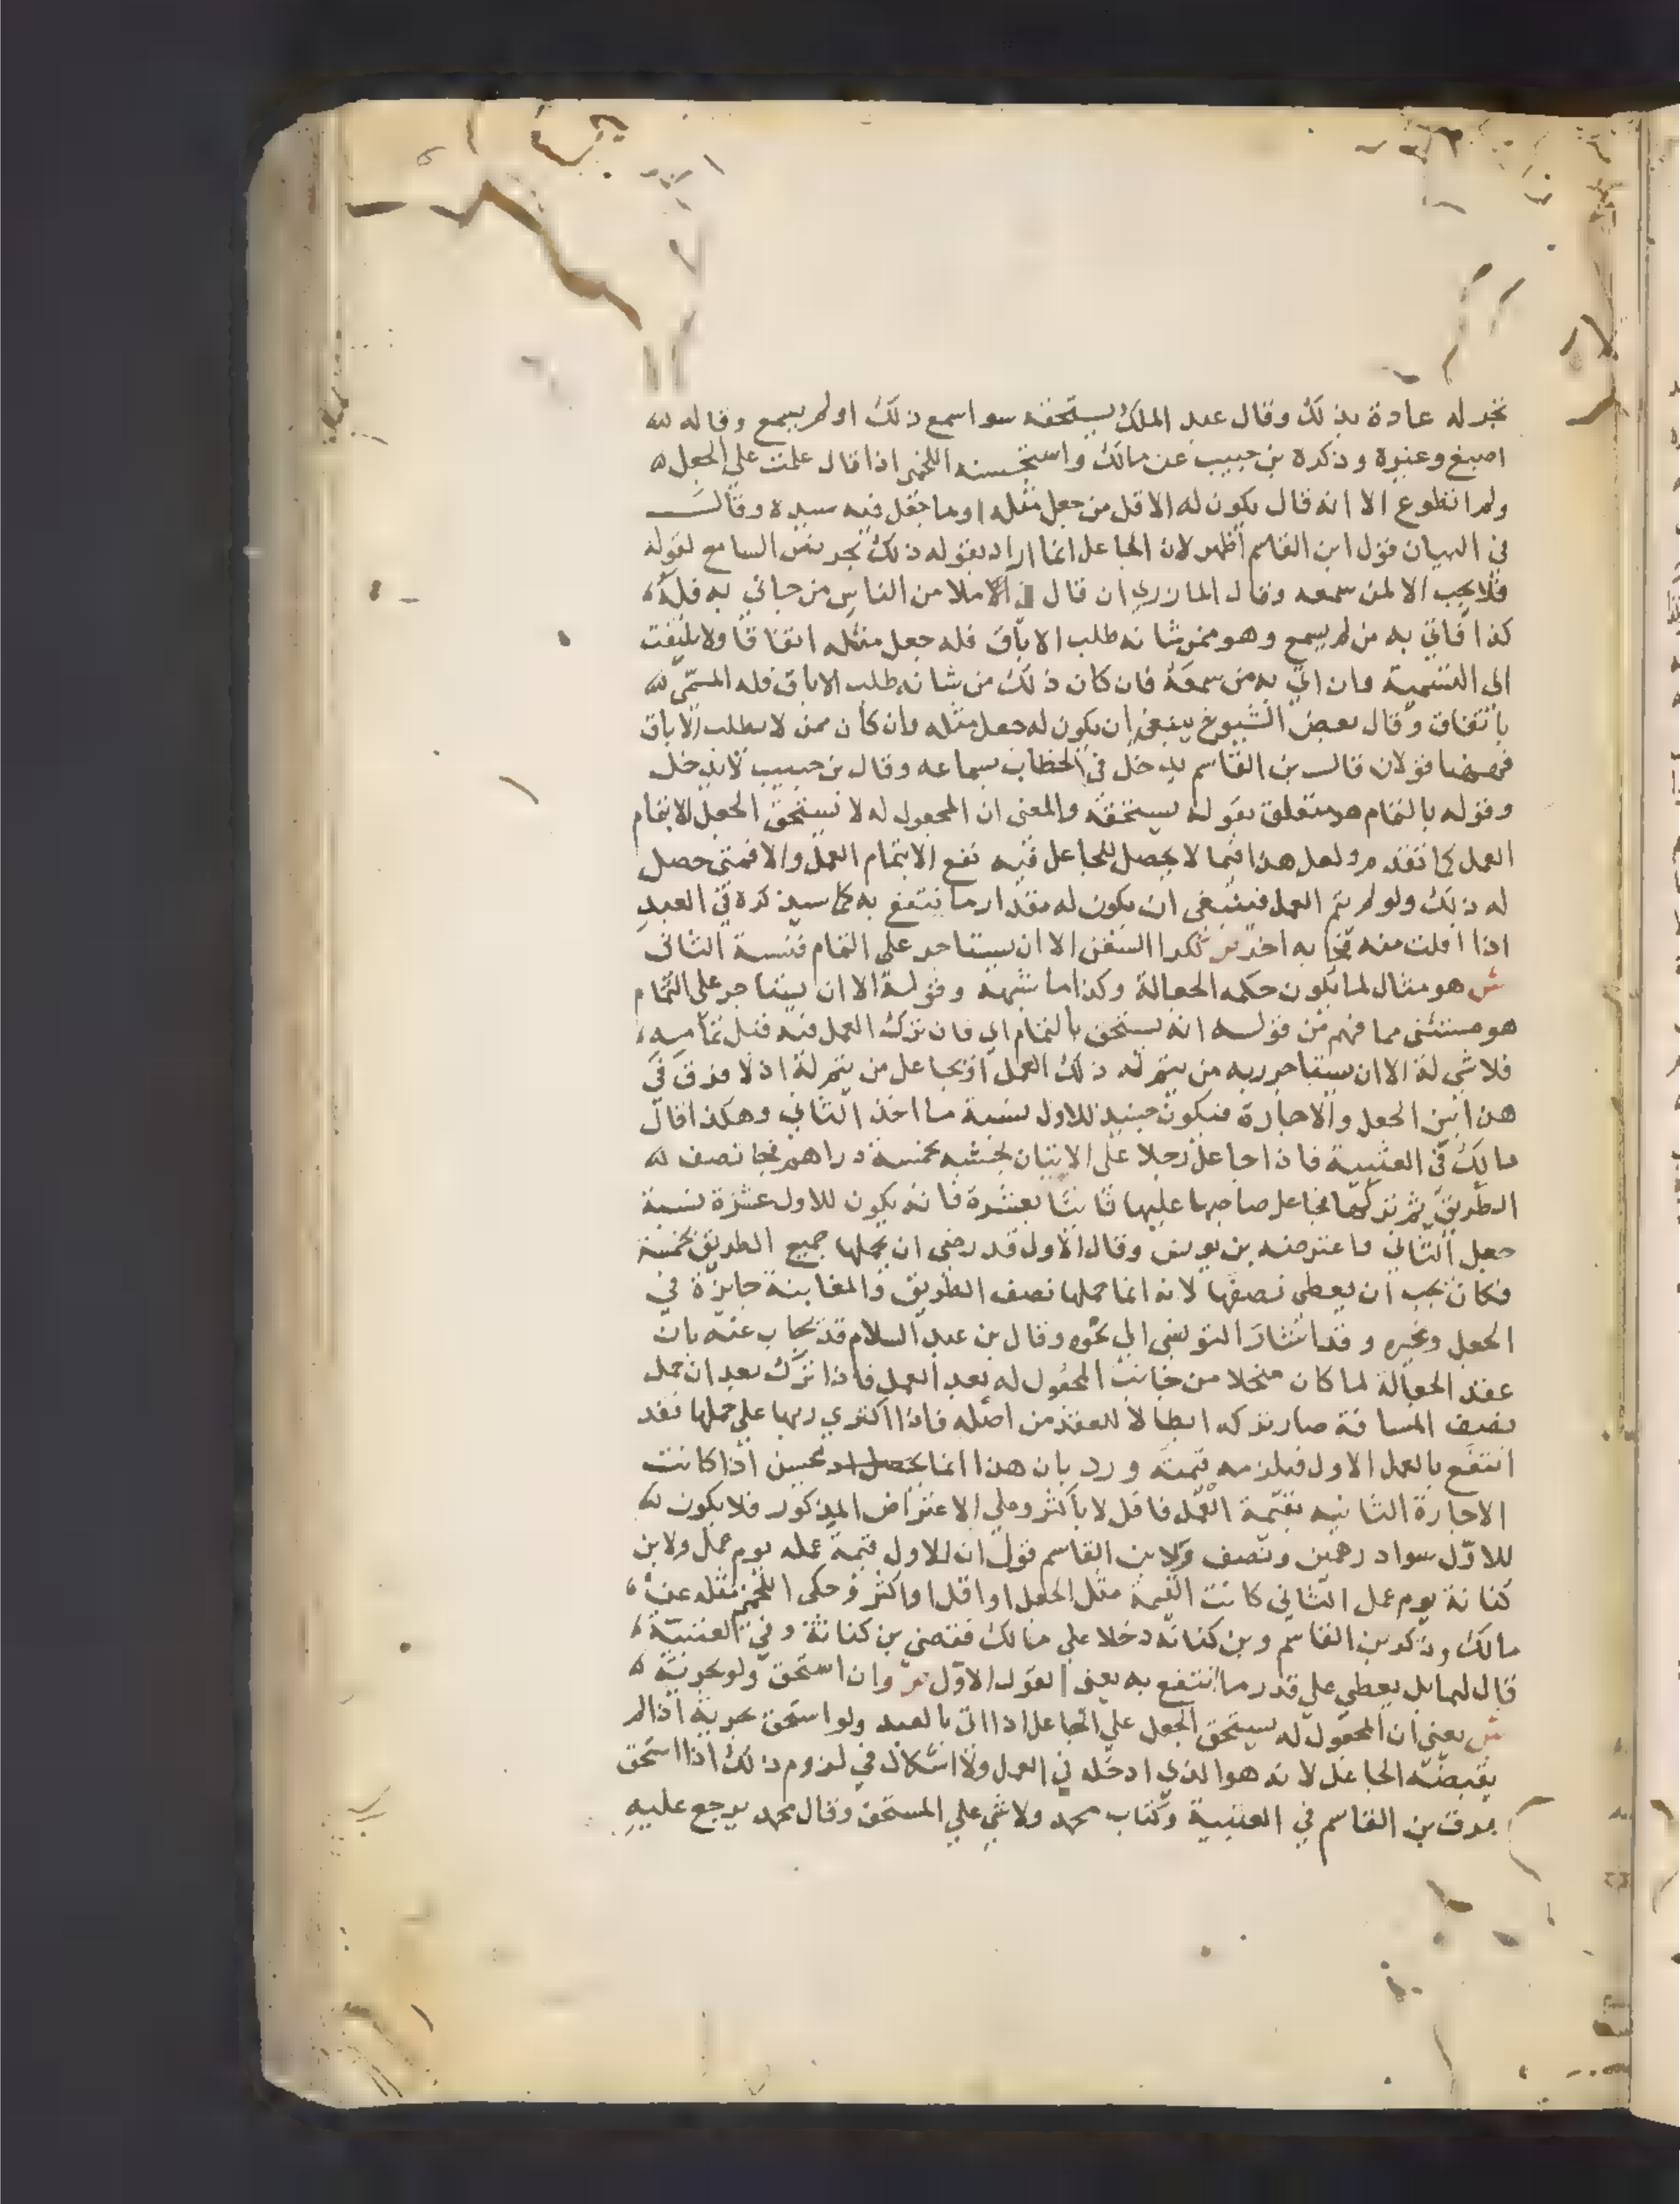 تجر له عادة بذلك وقال عبد الملك يستحقه سوا سمع ذلك او لم يسمع وقاله
اصبغ وغيره وذكره بن حبيب عن مالك واستحسنه اللخمي اذا قال علمت علي الجعل
ولم اتطوع الا انه قال يكون له الاقل من جعل مثله او ما جعل فيه سيده وقال
في البيان قول ابن القاسم اظهر لان الجاعل انما اراد بقوله ذلك تحريض السامع لقوله
فلا يجب الا لمن سمعه وقال المازري ان قال في الاملا من الناس من جاني به فله
كذا فاتي به من لم يسمع وهو ممن شانه طلب الاباق فله جعل مثله اتفاقا ولا يلتفت
الى التسمية وان اتي به من سمعه فان كان ذلك من شانه طلب الاباق فله المسمى
باتفاق وقال بعض الشيوخ ينبغي ان يكون له جعل مثله وان كان ممن لا يطلب الاباق
فهاهنا قولان قال بن القاسم يدخل في الخطاب بسماعه وقال بن حبيب لا يدخل
وقوله بالتمام هو متعلق بقوله يستحقه والمعنى ان المجعول له لا يستحق الجعل الا بتمام
العمل كما تقدم ولعل هذا فيما لا يحصل للجاعل فيه نفع الا بتمام العمل والا فمتى حصل
له ذلك ولو لم يتم العمل فينبغى ان يكون له مقدار ما ينتفع به كما سيذكره في العبد
اذا افلت منه فجا به اخر ص ككرا السفن الا ان يستاجر على التمام فنسبة الثانى
ش هو مثال لما يكون حكمه الجعالة وكذا ما شبهه وقوله الا ان يستاجر على التمام
هو مستثنى مما فهم من قوله انه يستحق بالتمام اي فان ترك العمل فيه قبل تمامه
فلا شي له الا ان يستاجر ربه من يتم له ذلك العمل او يجاعل من يتم له اذ لا فرق في
هذا بين الجعل والاجارة فيكون حينيذ للاول نسبة ما اخذ الثاني وهكذا قال
مالك في العتبية فاذا جاعل رجلا على الاتيان بخشبه بخمسة دراهم فجا نصف
الطريق ثم تركها فجاعل صاحبها عليها ثانيا بعشرة فانه يكون للاول عشرة نسبة
جعل الثاني واعترضه بن يونس وقال الاول قد رضى ان يحملها جميع الطريق بخمسة
فكان يجب ان يعطى نصفها لانه انما حملها نصف الطريق والمغابنة جايزة في
الجعل وغيره وقد اشار التونسي الي نحوه وقال بن عبد السلام قد يجاب عنه بان
عقد الجعالة لما كان منحلا من جانب المجعول له بعد العمل فاذا ترك بعد ان حمل
نصف المسافة صار تركه ابطالا للعقد من اصله فاذا اكتري ربها علي حملها فقد
انتفع بالعمل الاول فيلزمه قيمته ورد بان هذا انما يحسن اذا كانت
الاجارة الثانيه بقيمة العمل فاقل لا باكثر وعلي الاعتراض المذكور فلا يكون
للاول سوا درهمين ونصف ولابن القاسم قول ان للاول قيمة عمله يوم عمل ولابن
كنانة يوم عمل الثاني كانت القيمة مثل الجعل او اقل او اكثر وحكى اللخمي مثله عن
مالك وذكر بن القاسم وبن كنانه دخلا علي مالك فقضى بن كنانة وفي العتبية
قال لهما بل يعطي علي قدر ما انتفع به يعنى بقول الاول ص وان استحق ولو بحرية
ش يعنى ان المجعول له يستحق الجعل علي الجاعل اذا اتى بالعبد ولو استحق بحرية اذا لم
يقبضه الجاعل لانه هو الذي ادخله في العمل ولا اشكال في لزوم ذلك اذا استحق
برق بن القاسم في العتبية وكتاب محمد ولا شي علي المستحق وقال محمد يرجع عليه